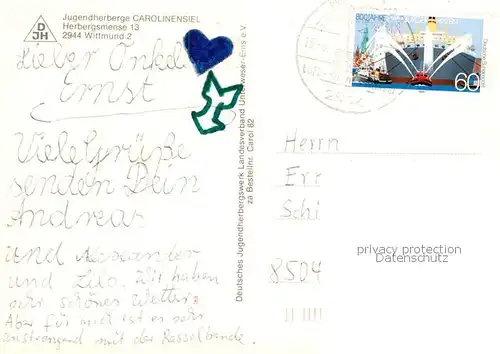 DJH
Jugendherberge CAROLINENSIEL
Herbergsmense 13
2944 Wittmund 2
Lieber Onkel
Ernst
Vielegrüße
senden Dein
Andreas
und Alexander
und Lilo. Wir haben
sehr schönes Wetter.
Aber für mich ist es sehr
anstrengend mit der Rasselbande.
Deutsches Jugendherbergswerk Landesverband Unterweser-Ems e.V.
za Bestellnr. Carol 82
800 JAHRE HAFEN HAMBURG
60
Herrn
Schi
8504
privacy protection
Datenschutz